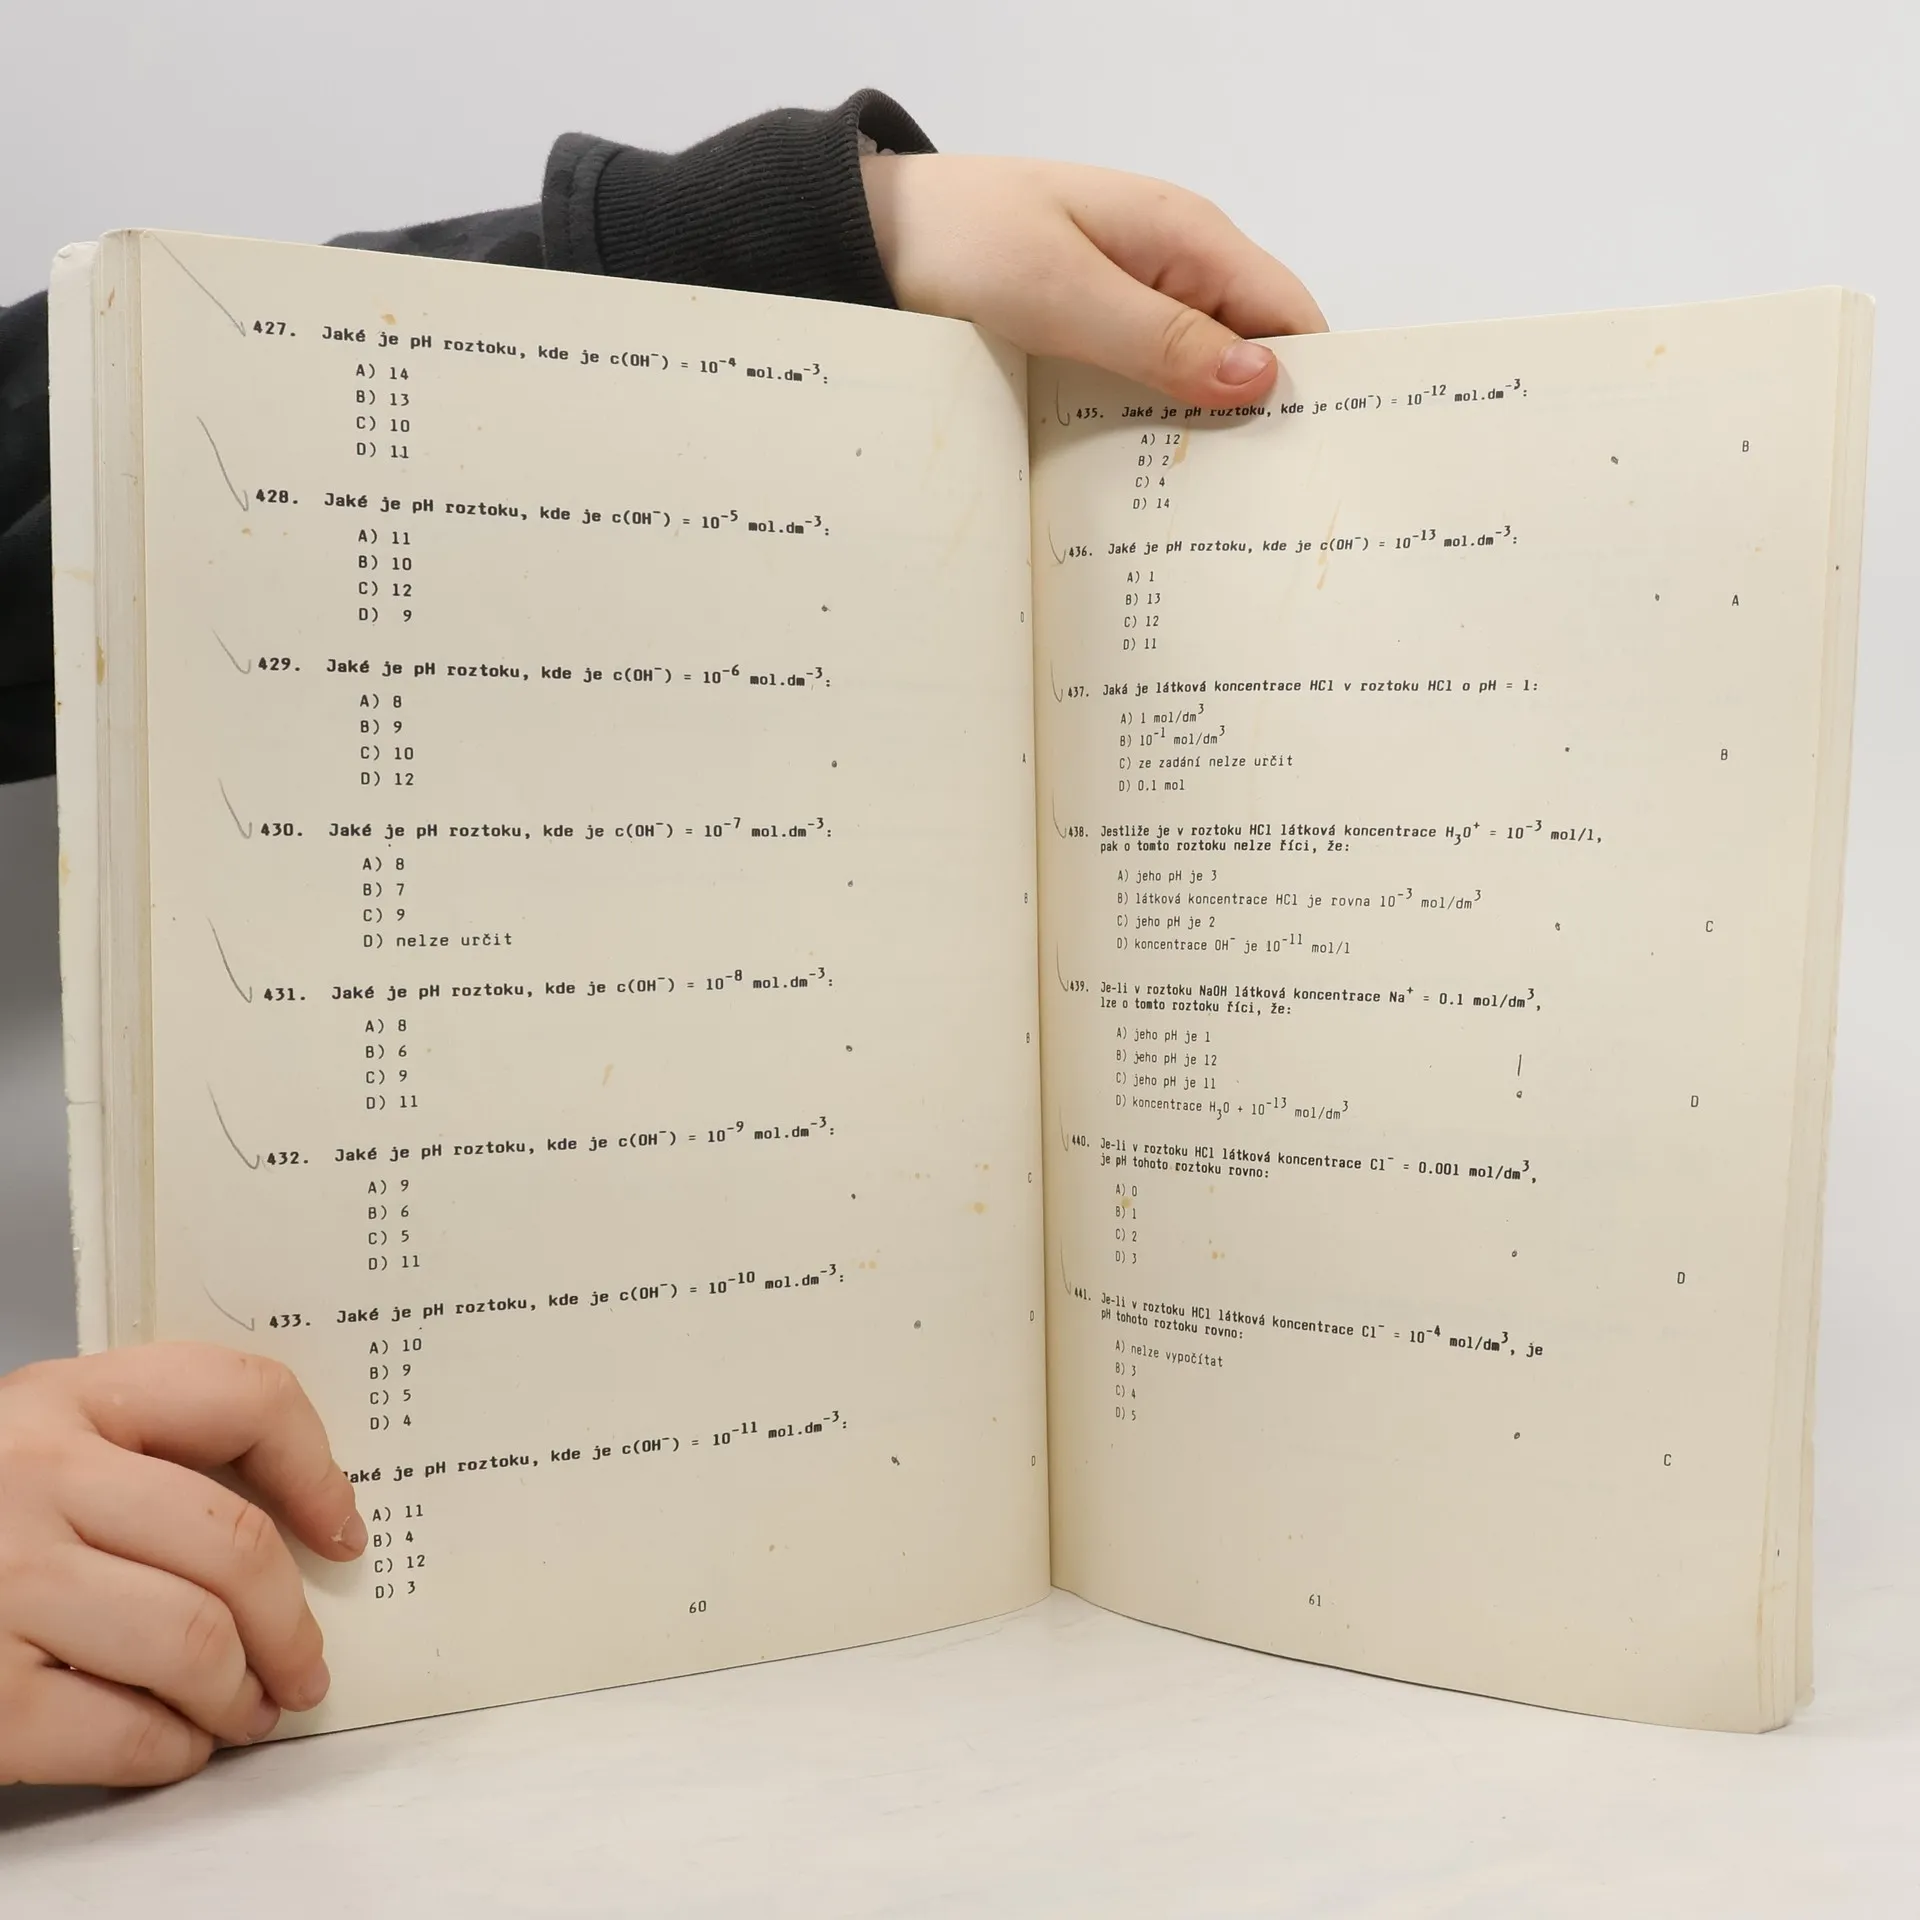 427. Jaké je pH roztoku, kde je c(OH⁻) = 10⁻⁴ mol.dm⁻³:
A) 14
B) 13
C) 10
D) 11
C
428. Jaké je pH roztoku, kde je c(OH⁻) = 10⁻⁵ mol.dm⁻³:
A) 11
B) 10
C) 12
D) 9
D
429. Jaké je pH roztoku, kde je c(OH⁻) = 10⁻⁶ mol.dm⁻³:
A) 8
B) 9
C) 10
D) 12
A
430. Jaké je pH roztoku, kde je c(OH⁻) = 10⁻⁷ mol.dm⁻³:
A) 8
B) 7
C) 9
D) nelze určit
B
431. Jaké je pH roztoku, kde je c(OH⁻) = 10⁻⁸ mol.dm⁻³:
A) 8
B) 6
C) 9
D) 11
B
432. Jaké je pH roztoku, kde je c(OH⁻) = 10⁻⁹ mol.dm⁻³:
A) 9
B) 6
C) 5
D) 11
C
433. Jaké je pH roztoku, kde je c(OH⁻) = 10⁻¹⁰ mol.dm⁻³:
A) 10
B) 9
C) 5
D) 4
D
Jaké je pH roztoku, kde je c(OH⁻) = 10⁻¹¹ mol.dm⁻³:
A) 11
B) 4
C) 12
D) 3
D
60
435. Jaké je pH roztoku, kde je c(OH⁻) = 10⁻¹² mol.dm⁻³:
A) 12
B) 2
C) 4
D) 14
B
436. Jaké je pH roztoku, kde je c(OH⁻) = 10⁻¹³ mol.dm⁻³:
A) 1
B) 13
C) 12
D) 11
A
437. Jaká je látková koncentrace HCl v roztoku HCl o pH = 1:
A) 1 mol/dm³
B) 10⁻¹ mol/dm³
C) ze zadání nelze určit
D) 0.1 mol
B
438. Jestliže je v roztoku HCl látková koncentrace H₃O⁺ = 10⁻³ mol/l,
pak o tomto roztoku nelze říci, že:
A) jeho pH je 3
B) látková koncentrace HCl je rovna 10⁻³ mol/dm³
C) jeho pH je 2
D) koncentrace OH⁻ je 10⁻¹¹ mol/l
C
439. Je-li v roztoku NaOH látková koncentrace Na⁺ = 0.1 mol/dm³,
lze o tomto roztoku říci, že:
A) jeho pH je 1
B) jeho pH je 12
C) jeho pH je 11
D) koncentrace H₃O + 10⁻¹³ mol/dm³
D
440. Je-li v roztoku HCl látková koncentrace Cl⁻ = 0.001 mol/dm³,
je pH tohoto roztoku rovno:
A) 0
B) 1
C) 2
D) 3
D
441. Je-li v roztoku HCl látková koncentrace Cl⁻ = 10⁻⁴ mol/dm³, je
pH tohoto roztoku rovno:
A) nelze vypočítat
B) 3
C) 4
D) 5
C
61